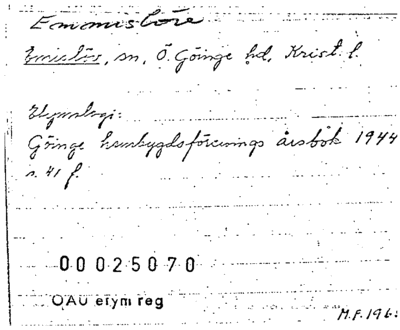 Emmislöv
Emislöv, sn, Ö. Göinge hd, Krist. l.
Etymologi:
Göinge hembygdsförenings årsbok 1944
s. 41 f.
00025070
OAU etym reg
M.F. 196